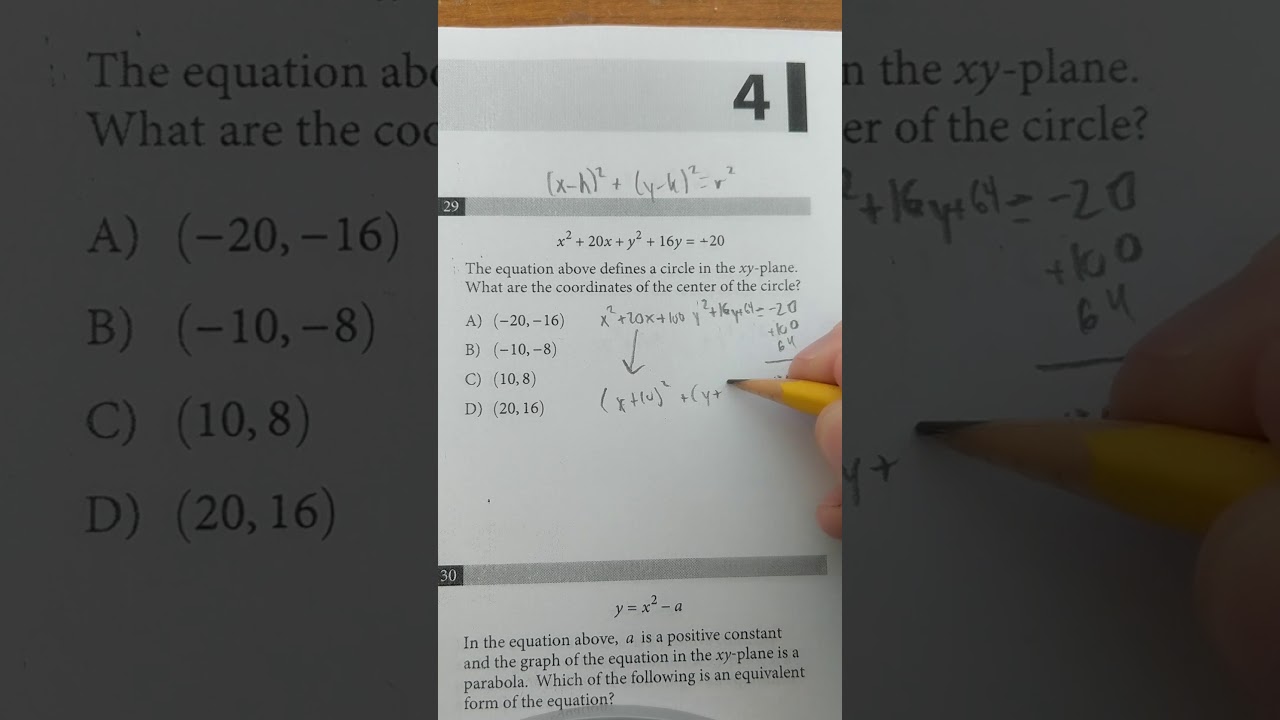 4
(x-h)² + (y-k)² = r²
29
x² + 20x + y² + 16y = -20
The equation above defines a circle in the xy-plane.
What are the coordinates of the center of the circle?
A) (-20, -16)
B) (-10, -8)
C) (10, 8)
D) (20, 16)
x²+20x+100 y²+16y+64 = -20
+100
64
(x+10)² + (y+
30
y = x² - a
In the equation above, a is a positive constant
and the graph of the equation in the xy-plane is a
parabola. Which of the following is an equivalent
form of the equation?